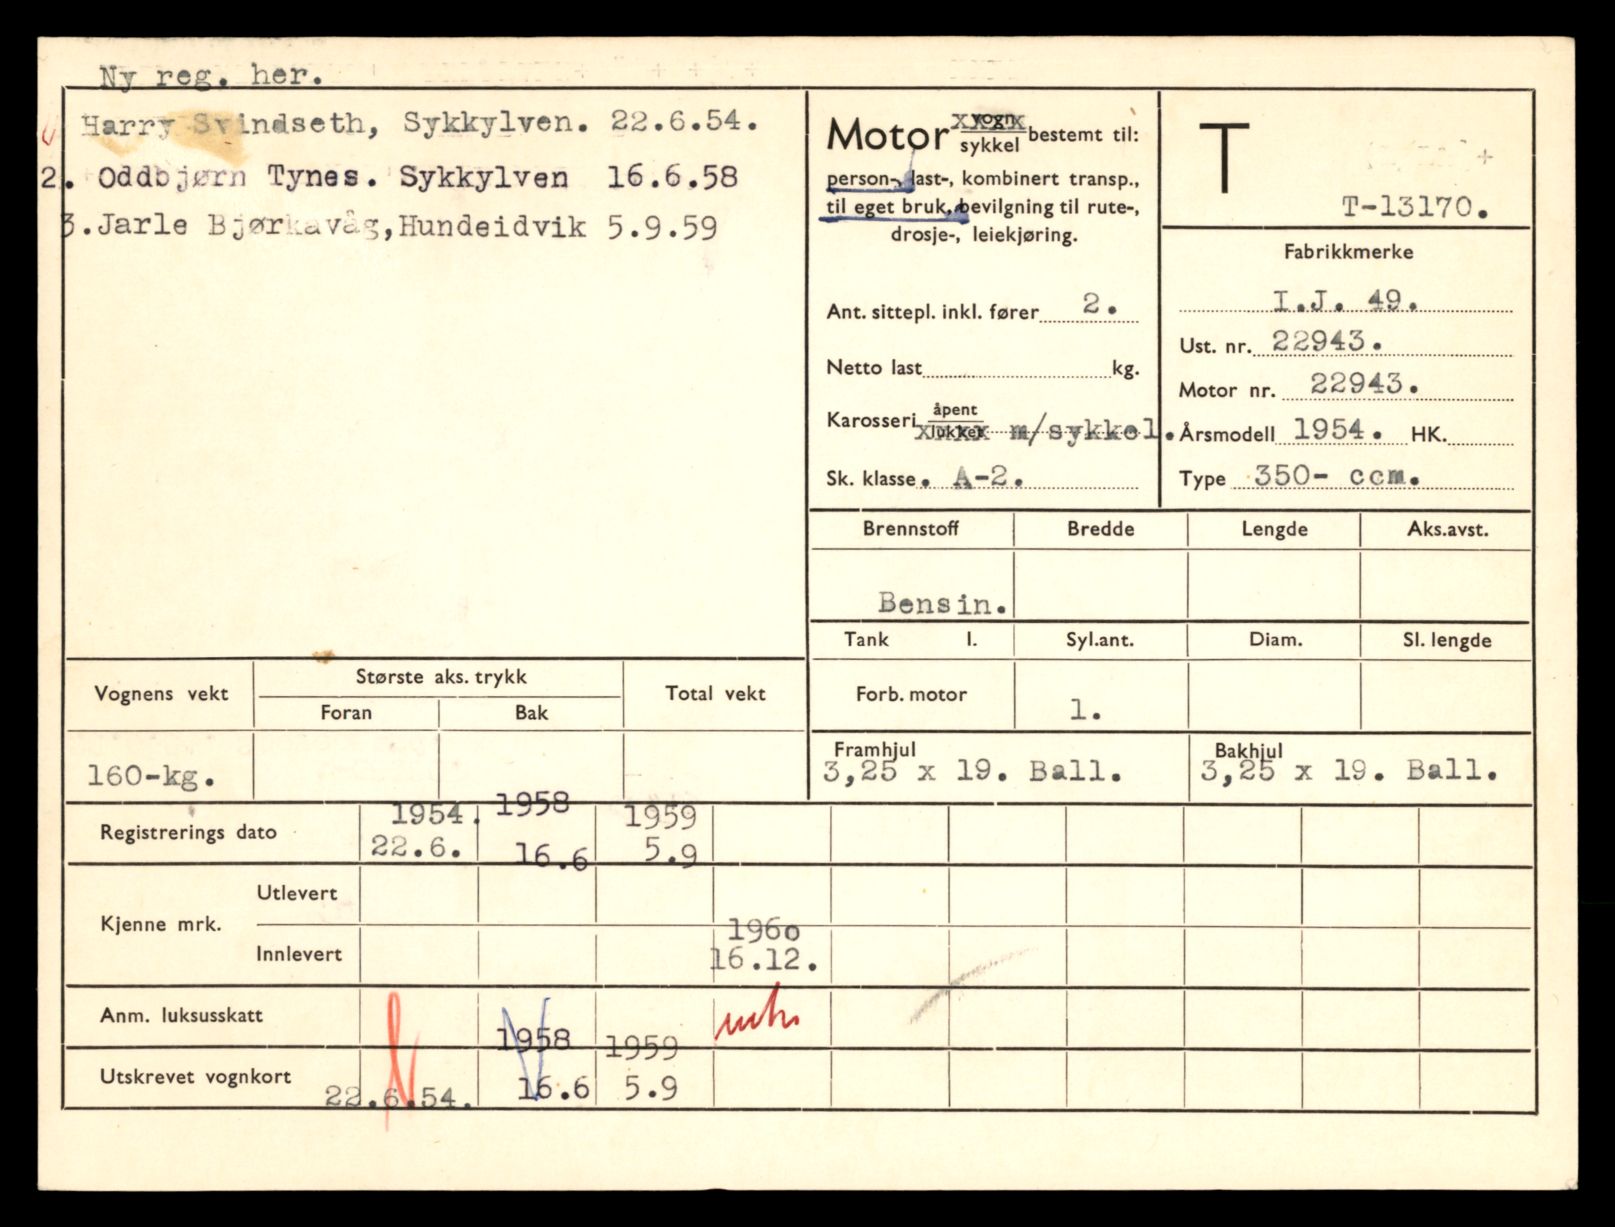 Ny reg. her.
Harry Svindseth, Sykkylven. 22.6.54.
2. Oddbjørn Tynes. Sykkylven 16.6.58
3.Jarle Bjørkavåg,Hundeidvik 5.9.59
Motor vogn xxxxx sykkel bestemt til:
person-, last-, kombinert transp.,
til eget bruk, bevilgning til rute-,
drosje-, leiekjøring.
Ant. sittepl. inkl. fører 2.
Netto last kg.
Karosseri åpent lukket xxxxx m/sykkel.
Sk. klasse. A-2.
T
T-13170.
Fabrikkmerke
I.J. 49.
Ust. nr. 22943.
Motor nr. 22943.
Årsmodell 1954. HK.
Type 350- ccm.
Brennstoff Bredde Lengde Aks.avst.
Bensin.
Tank l. Syl.ant. Diam. Sl. lengde
Forb. motor 1.
Framhjul Bakhjul
3,25 x 19. Ball. 3,25 x 19. Ball.
Vognens vekt Største aks. trykk Total vekt
Foran Bak
160-kg.
Registrerings dato
1954. 1958 1959
22.6. 16.6 5.9
Kjenne mrk. Utlevert
Innlevert 1960
16.12.
Anm. luksusskatt
1958 1959
Utskrevet vognkort
22.6.54. 16.6 5.9